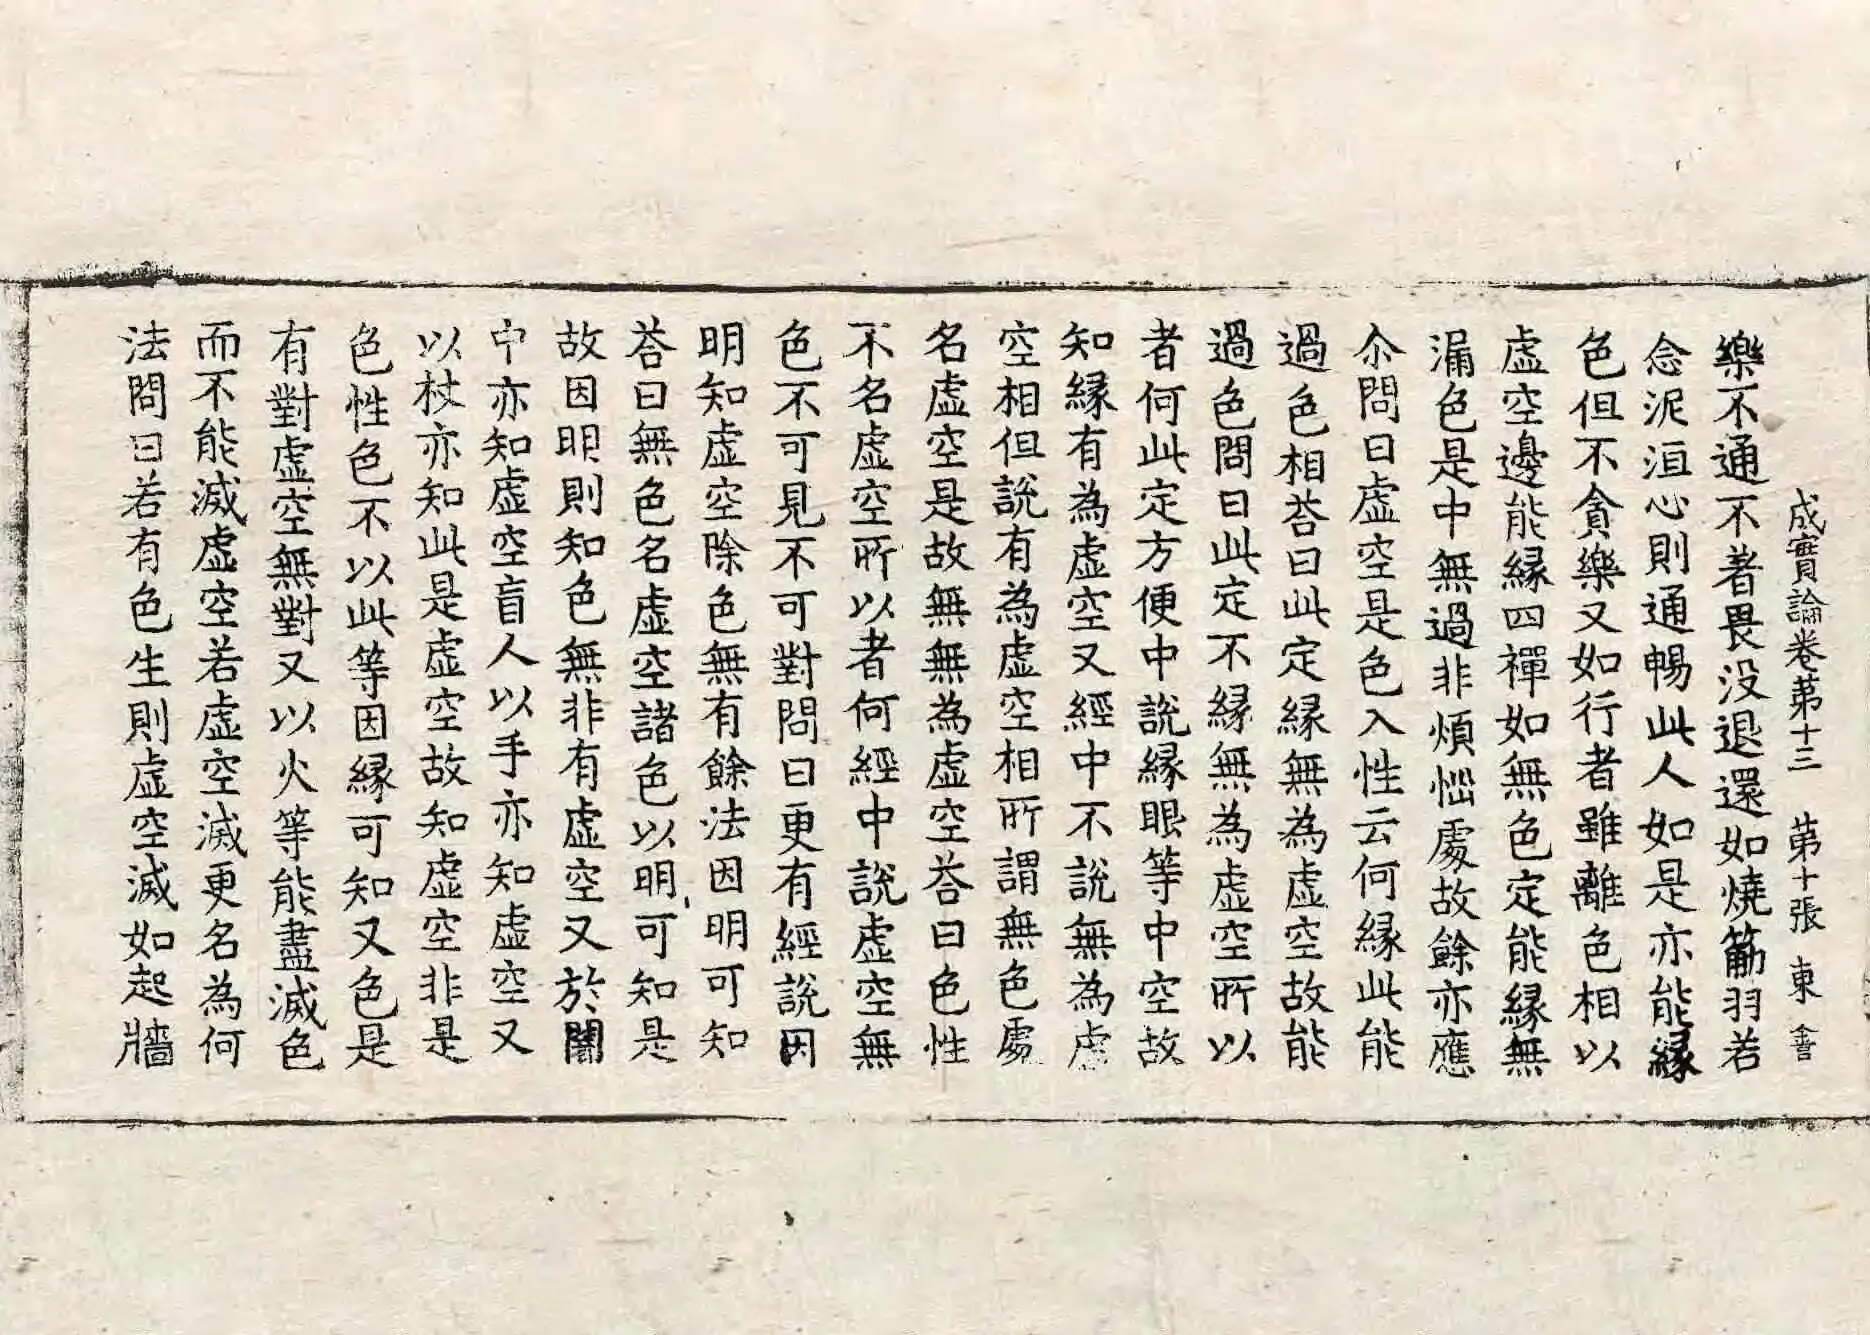 成實論卷第十三 第十張 東 書
樂不通不著畏没退還如燒筋羽若
念泥洹心則通暢此人如是亦能縁
色但不貪樂又如行者雖離色相以
虚空邊能縁四禪如無色定能縁無
漏色是中無過非煩惱處故餘亦應
尒問曰虚空是色入性云何縁此能
過色相荅曰此定縁無為虚空故能
過色問曰此定不縁無為虚空所以
者何此定方便中說縁眼等中空故
知縁有為虚空又經中不說無為虚
空相但說有為虚空相所謂無色處
名虚空是故無無為虚空荅曰色性
不名虚空所以者何經中說虚空無
色不可見不可對問曰更有經說因
明知虚空除色無有餘法因明可知
荅曰無色名虚空諸色以明可知是
故因明則知色無非有虚空又於闇
中亦知虚空盲人以手亦知虚空又
以杖亦知此是虚空故知虚空非是
色性色不以此等因縁可知又色是
有對虚空無對又以火等能盡滅色
而不能滅虚空若虚空滅更名為何
法問曰若有色生則虚空滅如起牆